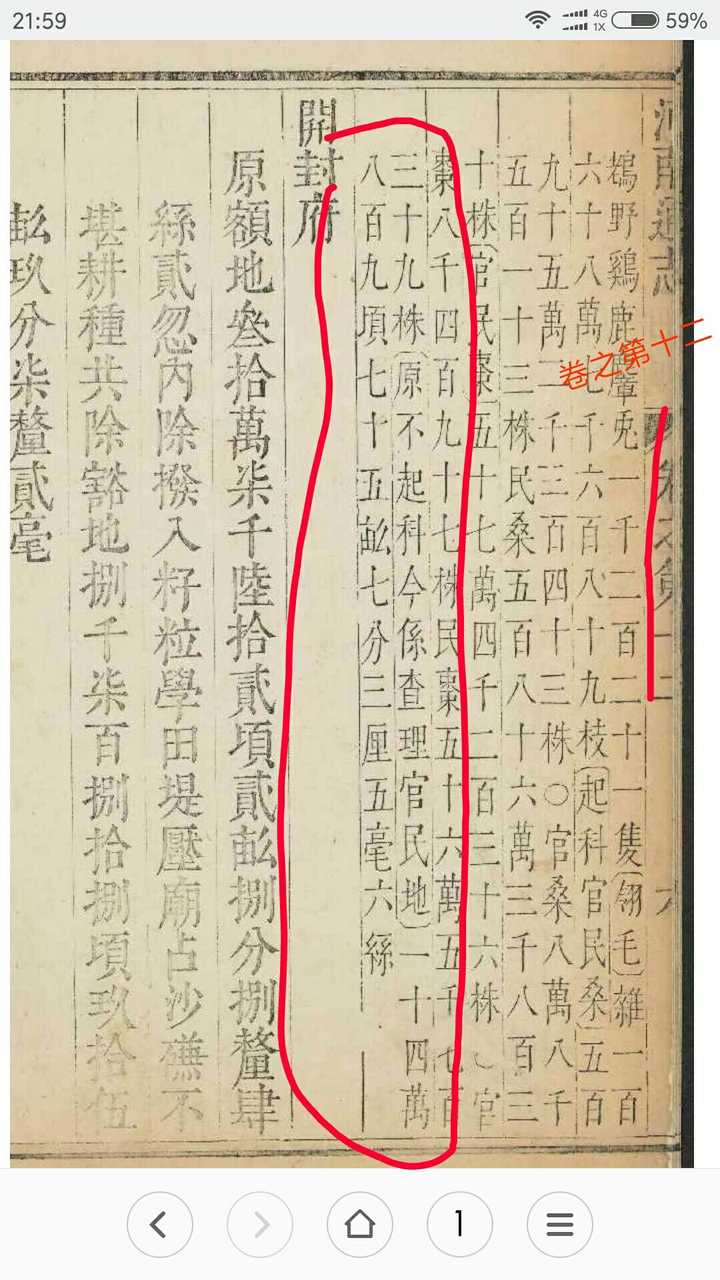 21:59
4G
1X
59%
河南通志
卷之第十二
六
卷之第十二
鵶野鷄鹿麞兎一千二百二十一隻〔翎毛〕雜一百
六十八萬七千六百八十九枝〔起科官民桑〕五百
九十五萬二千三百四十三株○官桑八萬八千
五百一十三株民桑五百八十六萬三千八百三
十株〔官民棗〕五十七萬四千二百三十六株○官
棗八千四百九十七株民棗五十六萬五千七百
三十九株〔原不起科今係查理官民地〕一十四萬
八百九頃七十五畝七分三厘五毫六絲
開封府
原額地叄拾萬柒千陸拾貳頃貳畝捌分捌釐肆
絲貳忽內除撥入籽粒學田堤壓廟占沙不
堪耕種共除豁地捌千柒百捌拾捌頃玖拾伍
畝玖分柒釐貳毫
1